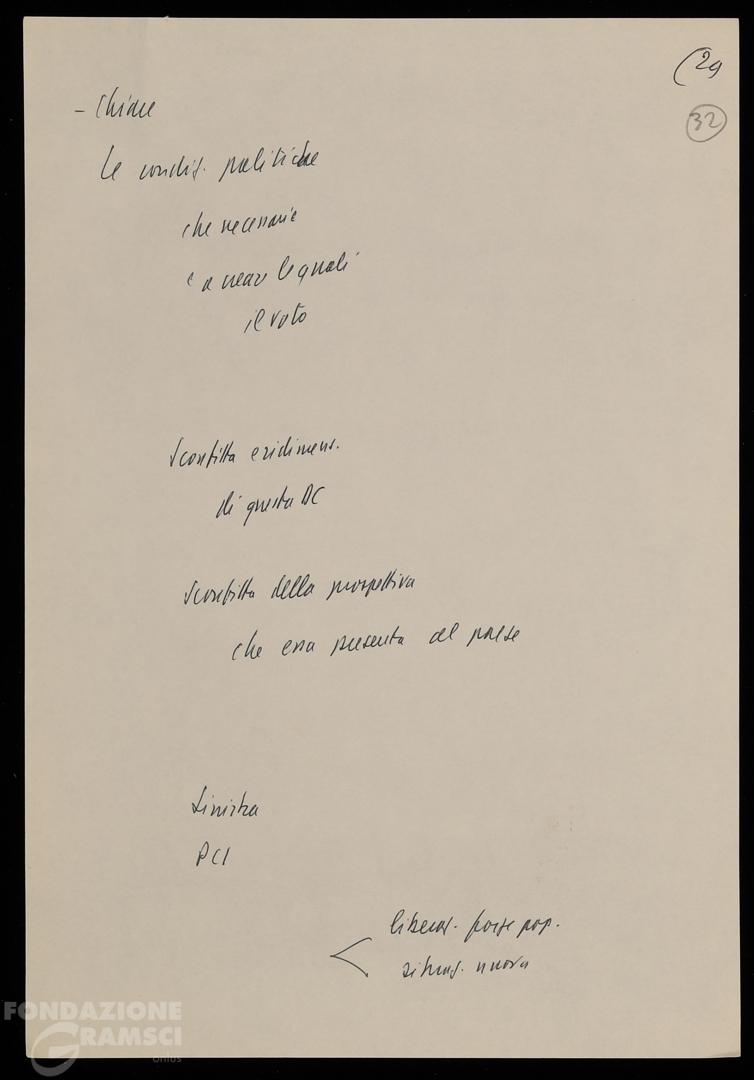 (29
32
- Chiare
le condiz. politiche
che necessarie
e a creare le quali
il voto
Sconfitta e ridimens.
di questa DC
Sconfitta della prospettiva
che essa presenta al paese
Sinistra
PCI
< liberaz. forze pop.
situaz. nuova
FONDAZIONE
GRAMSCI
onlus